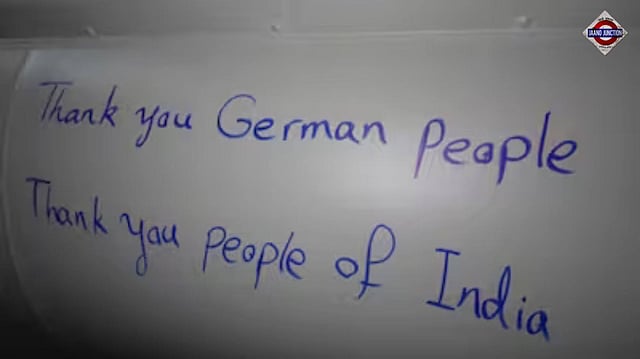 JAANO JUNCTION
Thank you German People
Thank you people of India